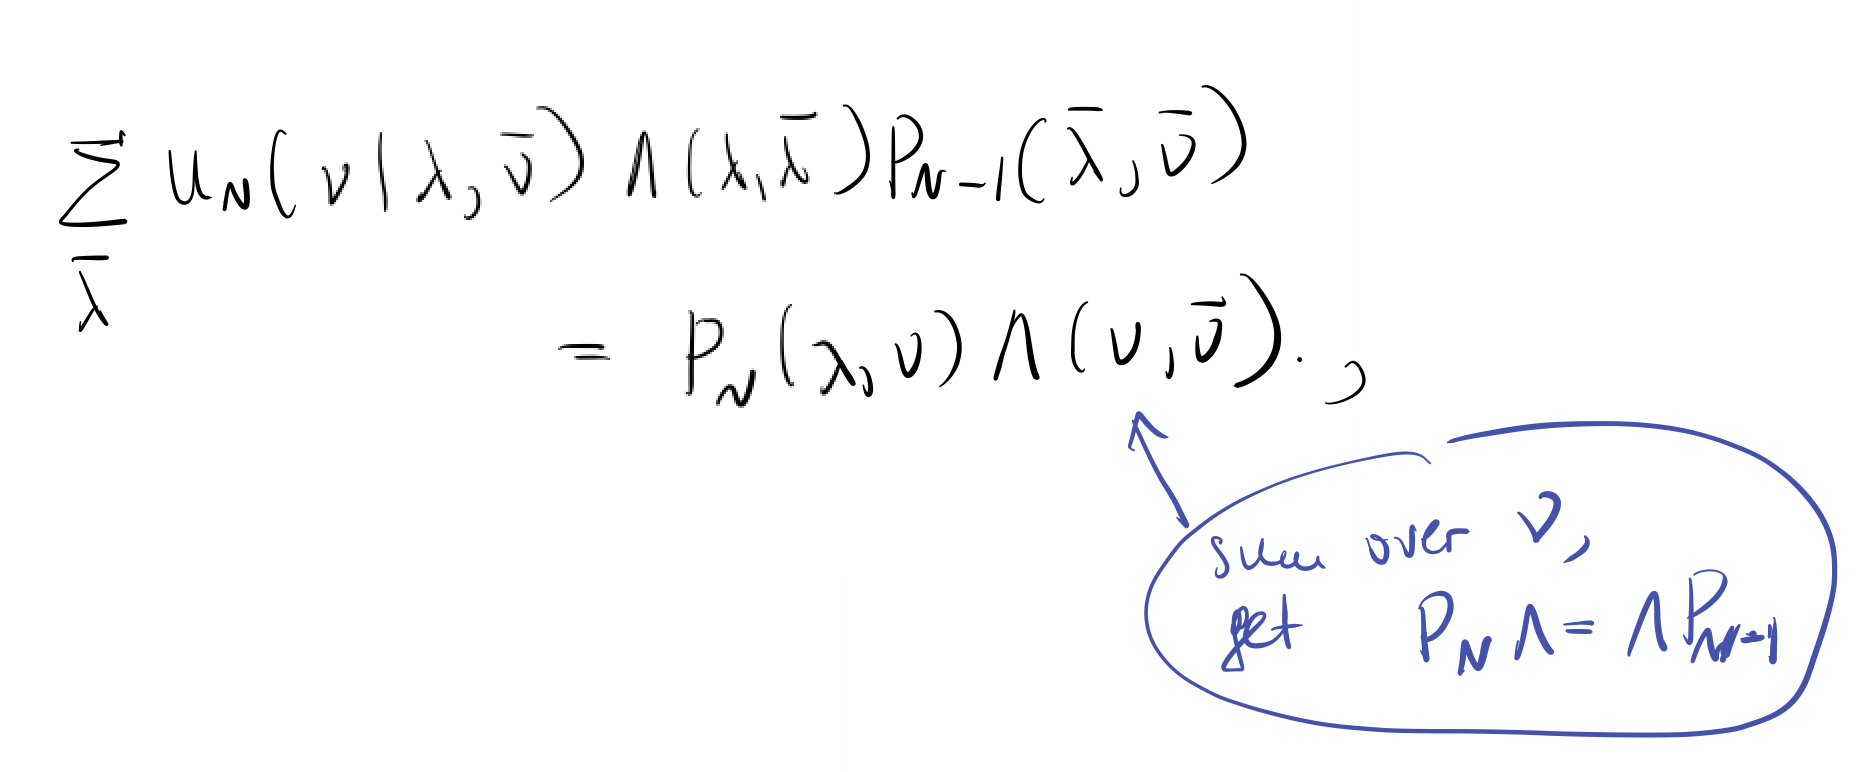 ∑ U_N(ν | λ, ν̄) Λ(λ, λ̄) P_{N-1}(λ̄, ν̄)
λ̄
= P_N(λ, ν) Λ(ν, ν̄). ,
sum over ν,
get P_N Λ = Λ P_{N-1}